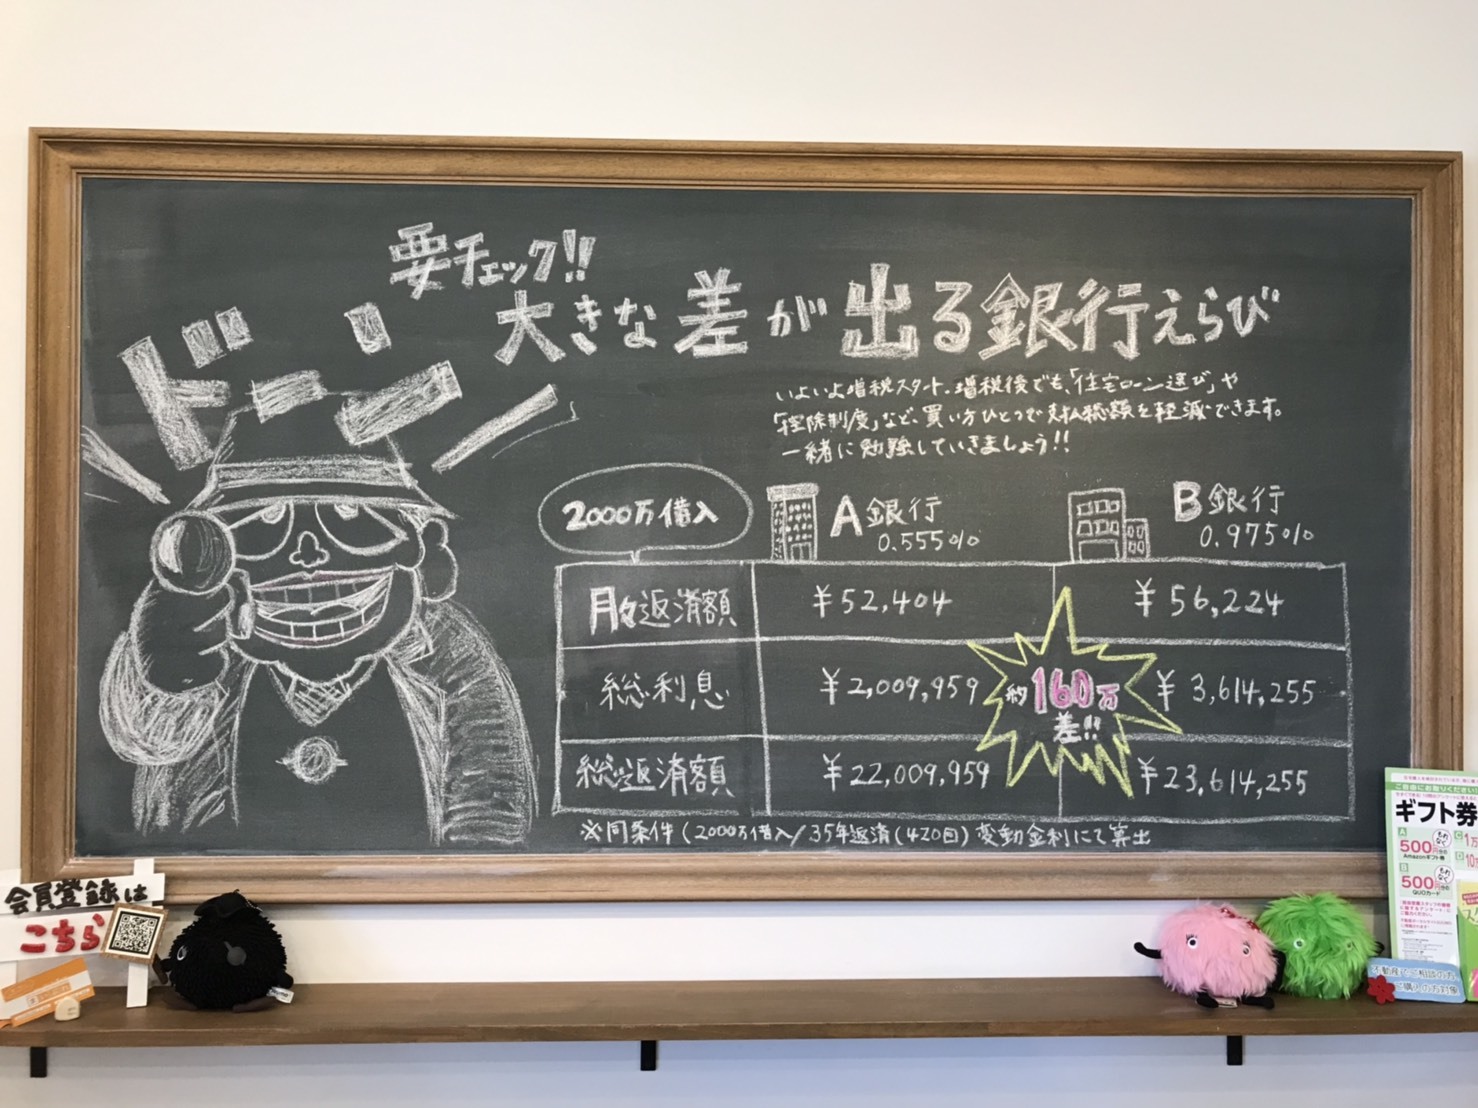 要チェック!!
大きな差が出る銀行えらび
ドーン
いよいよ増税スタート。増税後でも、「住宅ローン選び」や
「控除制度」など、買い方ひとつで支払総額を軽減できます。
一緒に勉強していきましょう!!
2000万借入
A銀行
0.555%
B銀行
0.975%
月々返済額
¥52,404
¥56,224
総利息
¥2,009,959
約160万
差!!
¥3,614,255
総返済額
¥22,009,959
¥23,614,255
※同条件(2000万借入/35年返済(420回)変動金利にて算出
会員登録は
こちら
ギフト券
A
500円分の
Amazonギフト券
B
500円分の
QUOカード
C
1万
D
10
不動産でご相談の方、
ご購入の方対象